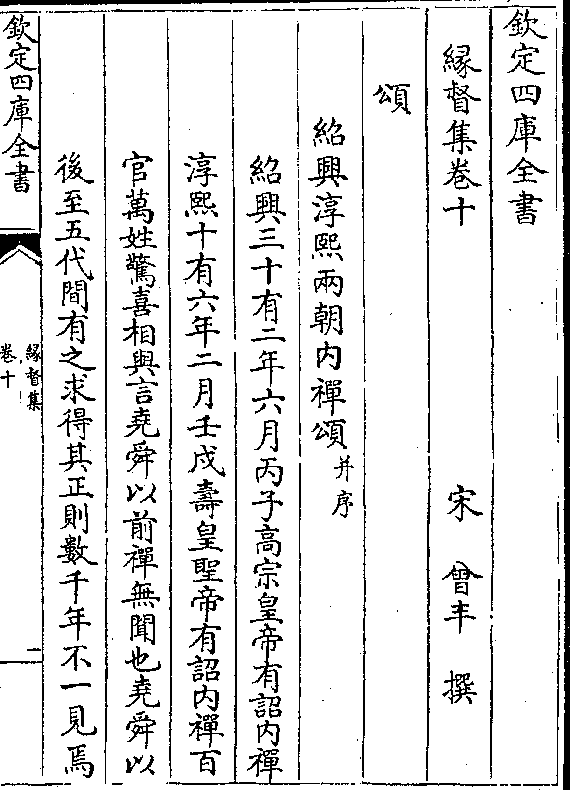 欽定四庫全書
縁督集卷十
宋 曾丰 撰
頌
紹興淳熙兩朝内禪頌并序
紹興三十有二年六月丙子高宗皇帝有詔内禪
淳熙十有六年二月壬戌壽皇聖帝有詔内禪百
官萬姓驚喜相與言堯舜以前禪無聞也堯舜以
後至五代間有之求得其正則數千年不一見焉
欽定四庫全書
縁督集
卷十
一